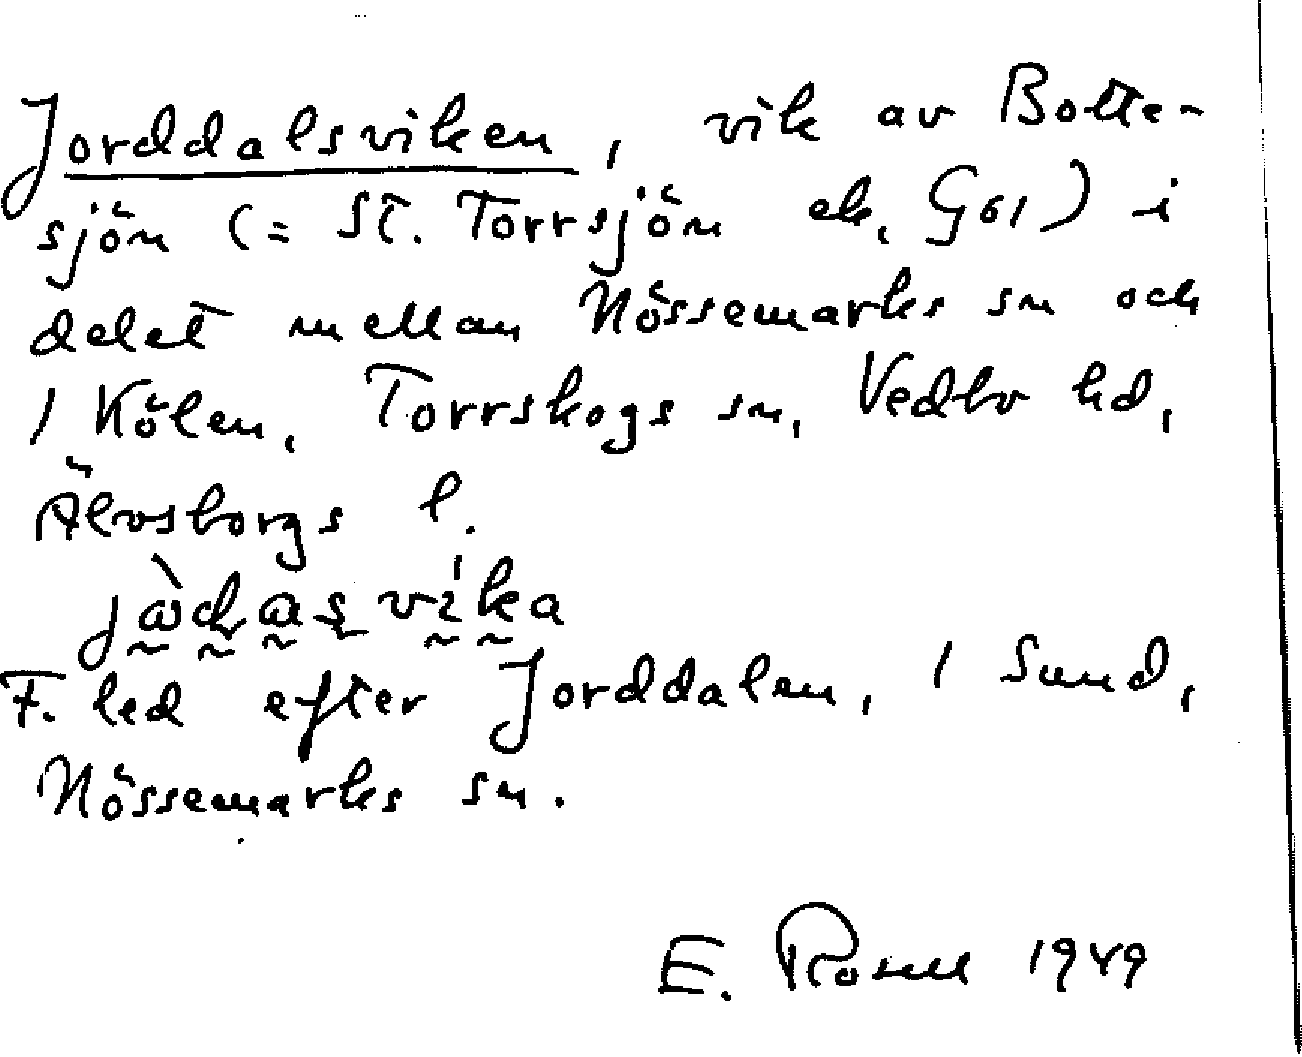 Jorddalsviken, vik av Botte-
sjön (= St. Torrsjön ek. G61) i
delet mellan Nössemarks sn och
1 Kölen, Torrskogs sn, Vedbo hd,
Älvsborgs l.
vika
F. led efter Jorddalen, 1 Sund,
Nössemarks sn.
E. Rosell 1949